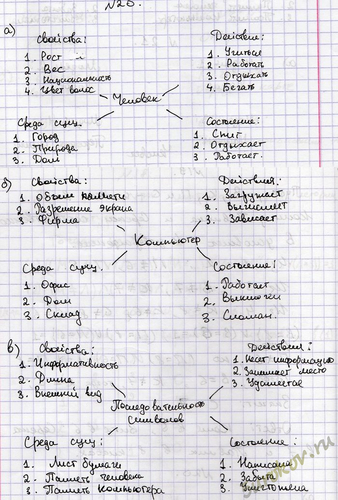 №20.
а)
Свойства:
1. Рост
2. Вес
3. Национальность
4. Цвет волос
Действие:
1. Учиться
2. Работать
3. Отдыхать
4. Бегать
Человек
Среда сущ.
1. Город
2. Природа
3. Дом
Состояние:
1. Спит
2. Отдыхает
3. Работает.
б)
Свойства:
1. Объём памяти
2. Разрешение экрана
3. Фирма
Действия:
1. Загружает
2. Вычисляет
3. Зависает
Компьютер
Среда сущ:
1. Офис
2. Дом
3. Склад
Состояние:
1. Работает
2. Выключен
3. Сломан.
в)
Свойства:
1. Информативность
2. Длина
3. Внешний вид
Действия:
1. Несёт информацию
2. Занимает место
3. Удаляется
Последовательность
символов
Среда сущ:
1. Лист бумаги
2. Память человека
3. Память компьютера
Состояние:
1. Написана
2. Забыта
3. Уничтожена